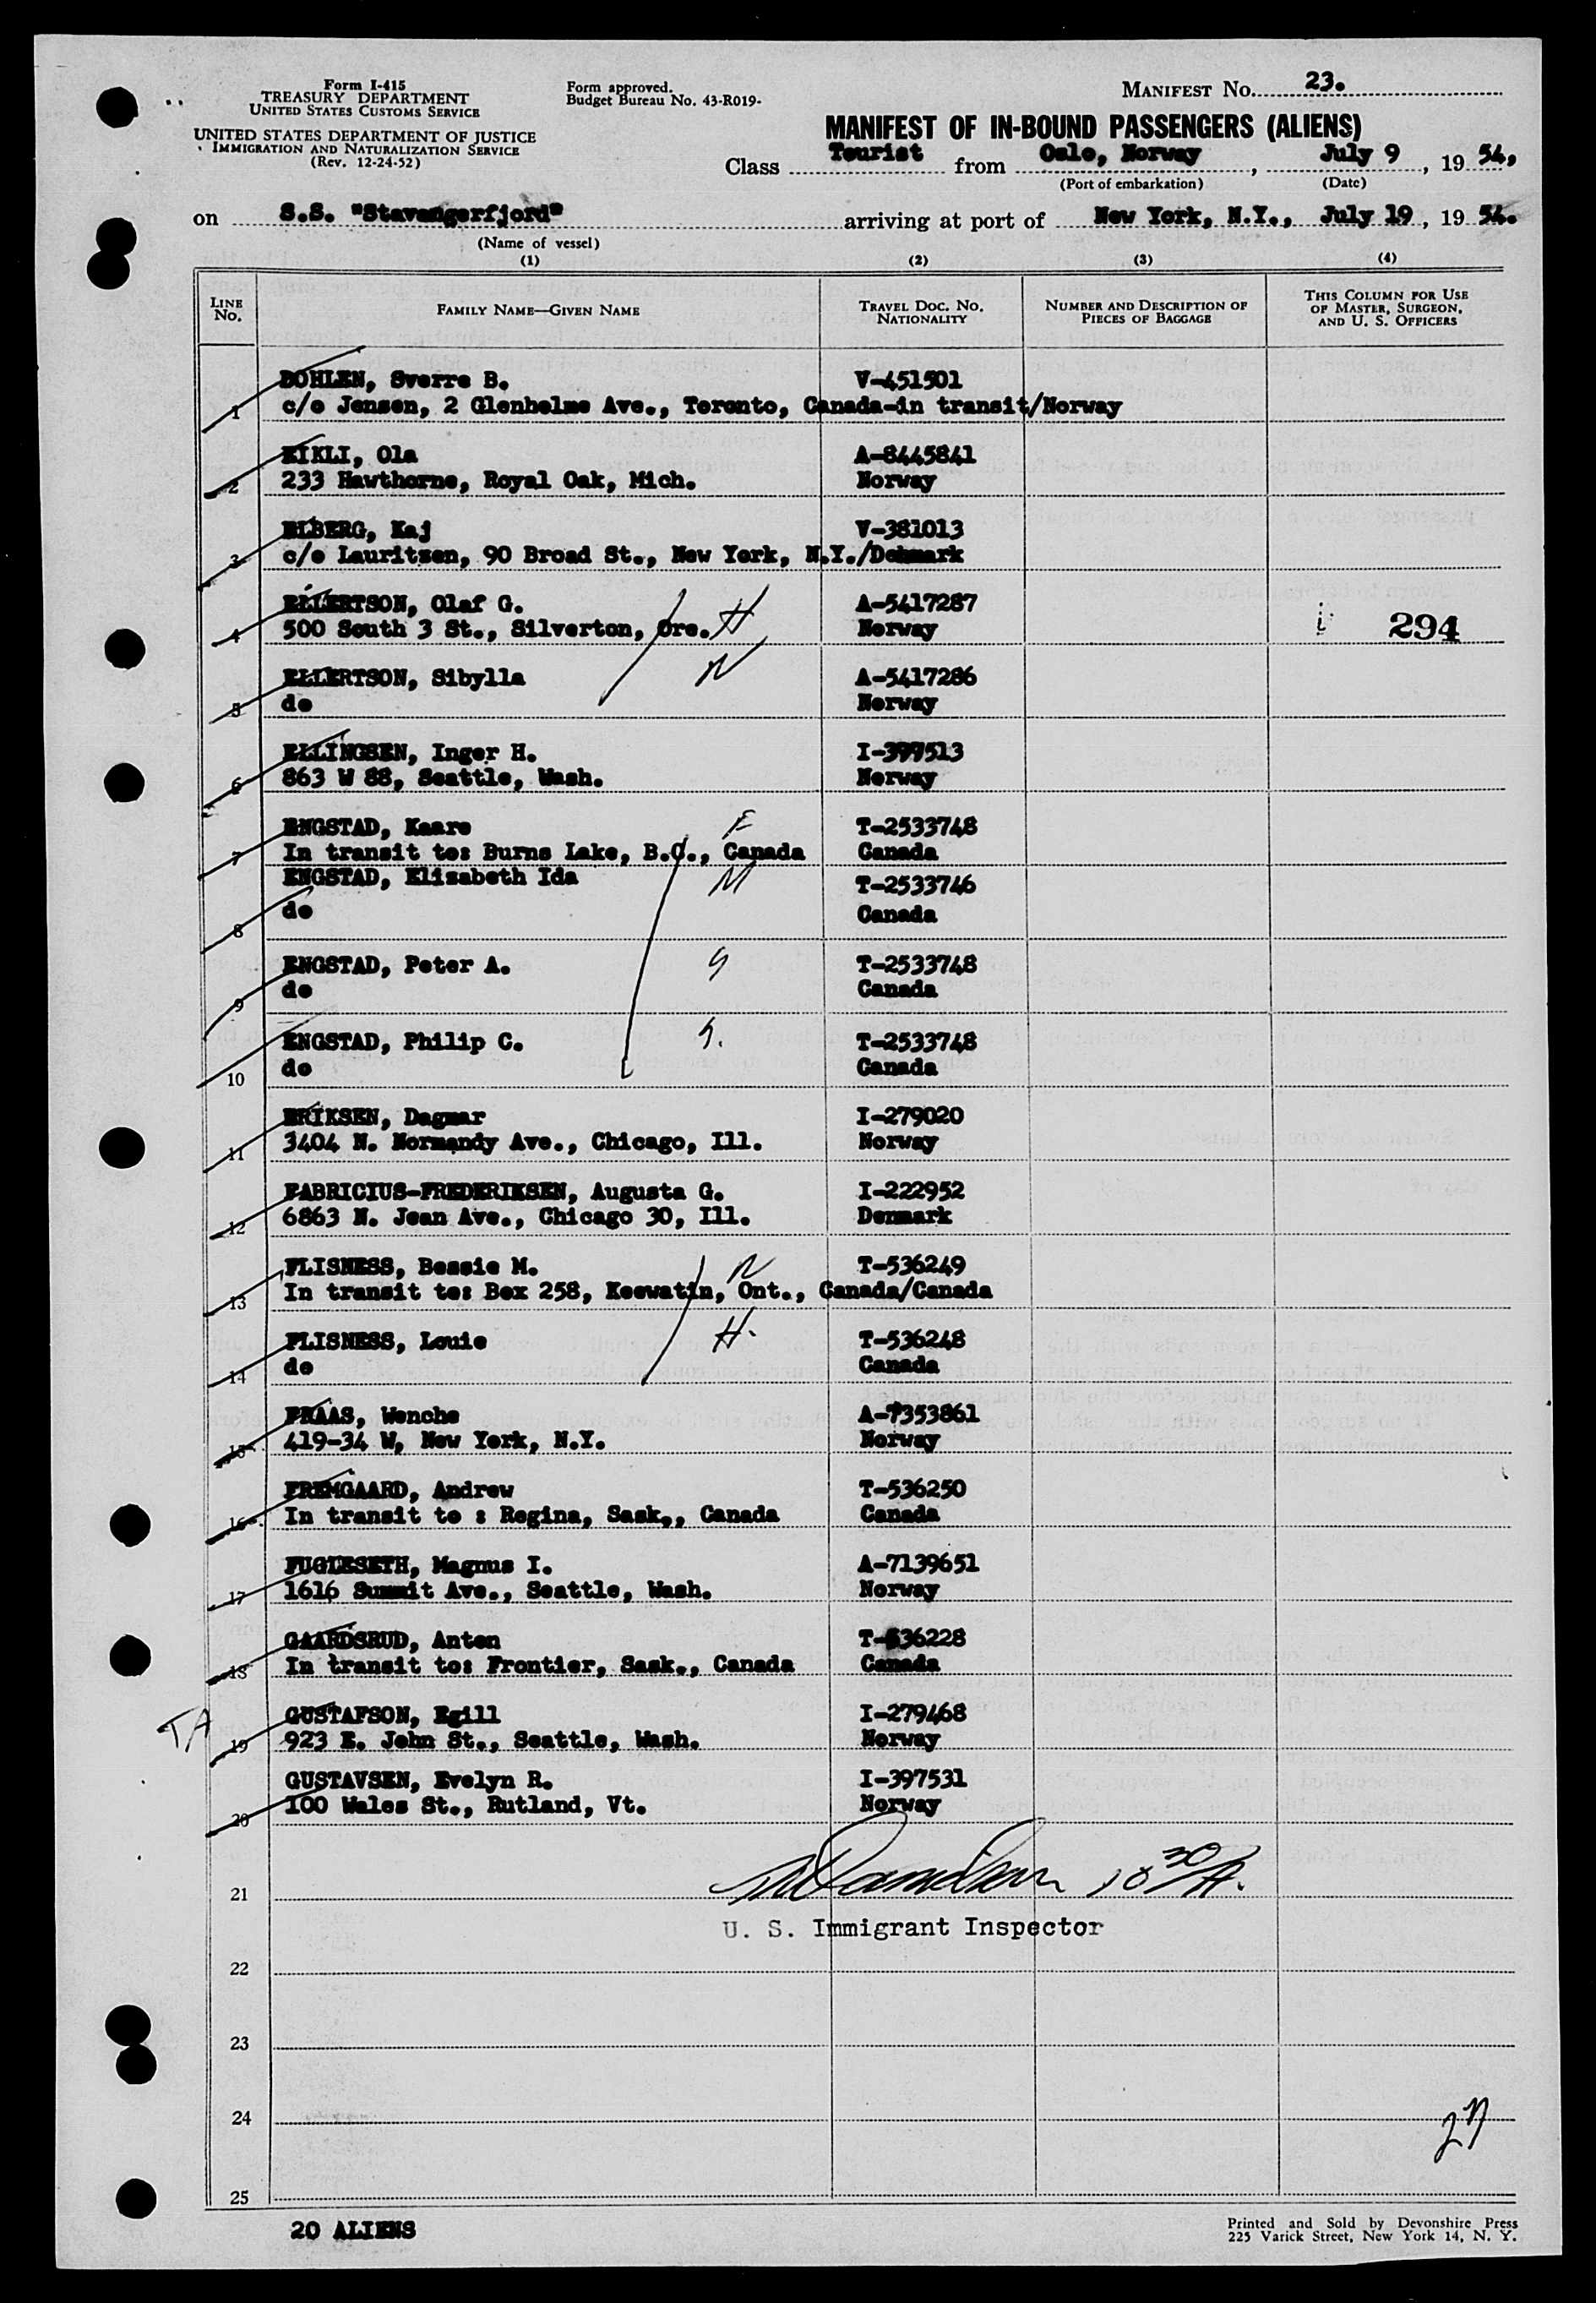 Form I-415
TREASURY DEPARTMENT
UNITED STATES CUSTOMS SERVICE
UNITED STATES DEPARTMENT OF JUSTICE
IMMIGRATION AND NATURALIZATION SERVICE
(Rev. 12-24-52)
Form approved.
Budget Bureau No. 43-R019-
MANIFEST NO. 23.
MANIFEST OF IN-BOUND PASSENGERS (ALIENS)
Class Tourist from Oslo, Norway, July 9, 1954,
(Port of embarkation) (Date)
on S.S. "Stavangerfjord" arriving at port of New York, N.Y., July 19, 1954.
(Name of vessel)
(1) (2) (3) (4)
LINE NO. FAMILY NAME—GIVEN NAME TRAVEL DOC. NO. NATIONALITY NUMBER AND DESCRIPTION OF PIECES OF BAGGAGE THIS COLUMN FOR USE OF MASTER, SURGEON, AND U. S. OFFICERS
DOHLEN, Sverre B. V-451501
1 c/o Jensen, 2 Glenholme Ave., Toronto, Canada-in transit/Norway
EIKLI, Ola A-8445841
2 233 Hawthorne, Royal Oak, Mich. Norway
ELBERG, Kaj V-381013
3 c/o Lauritzen, 90 Broad St., New York, N.Y./Denmark
ELLERTSON, Olaf G. H A-5417287
4 500 South 3 St., Silverton, Ore. Norway 294
ELLERTSON, Sibylla A-5417286
5 do Norway
ELLINGSEN, Inger H. I-399513
6 863 W 88, Seattle, Wash. Norway
ENGSTAD, Kaare F T-2533748
7 In transit to: Burns Lake, B.C., Canada Canada
ENGSTAD, Elizabeth Ida M T-2533746
8 do Canada
ENGSTAD, Peter A. T-2533748
9 do Canada
ENGSTAD, Philip C. T-2533748
10 do Canada
ERIKSEN, Dagmar I-279020
11 3404 N. Normandy Ave., Chicago, Ill. Norway
FABRICIUS-FREDERIKSEN, Augusta G. I-222952
12 6863 N. Jean Ave., Chicago 30, Ill. Denmark
FLISNESS, Bessie M. T-536249
13 In transit to: Box 258, Keewatin, Ont., Canada/Canada
FLISNESS, Louie H. T-536248
14 do Canada
FRAAS, Wenche A-7353861
15 419-34 W, New York, N.Y. Norway
FREMGAARD, Andrew T-536250
16 In transit to : Regina, Sask., Canada Canada
FUGLESETH, Magnus I. A-7139651
17 1616 Summit Ave., Seattle, Wash. Norway
GAARDSRUD, Anton T-536228
18 In transit to: Frontier, Sask., Canada Canada
TA GUSTAFSON, Egill I-279468
19 923 E. John St., Seattle, Wash. Norway
GUSTAVSEN, Evelyn R. I-397531
20 100 Wales St., Rutland, Vt. Norway
21 10 30/A.
U. S. Immigrant Inspector
22
23
24 27
25
20 ALIENS
Printed and Sold by Devonshire Press
225 Varick Street, New York 14, N. Y.